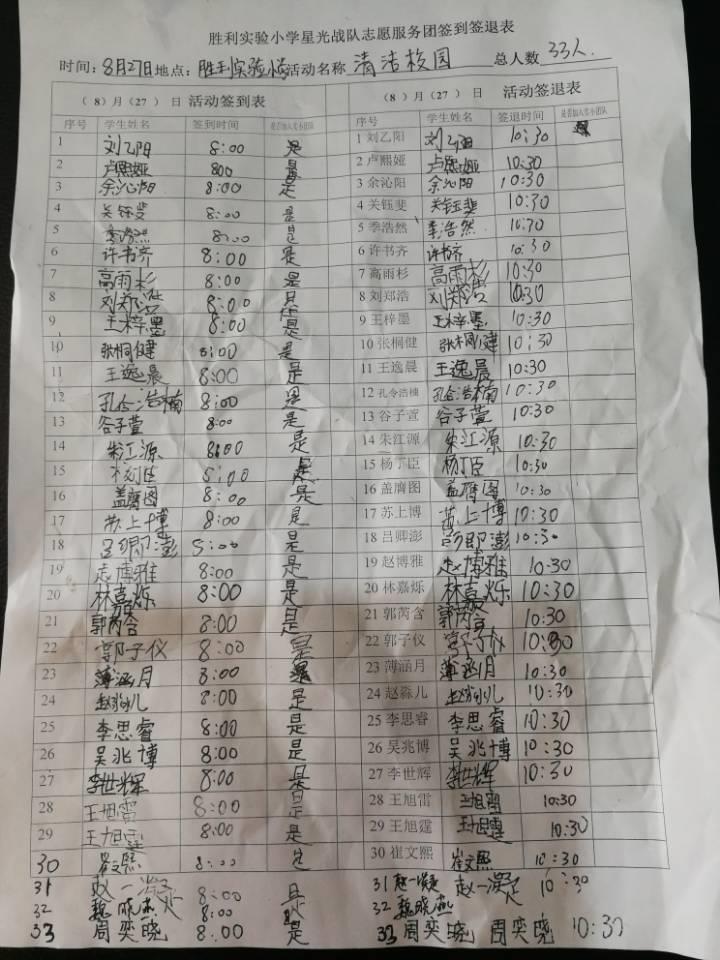 胜利实验小学星光战队志愿服务团签到签退表
时间：8月27日地点：胜利实验小活动名称 清洁校园 总人数 33人
（ 8 ）月（ 27 ） 日 活动签到表 （ 8 ）月（ 27 ） 日 活动签退表
序号 学生姓名 签到时间 是否加入党小团队 序号 学生姓名 签退时间 是否加入党小团队
1 刘乙阳 8:00 是 1 刘乙阳 刘乙阳 10:30
2 卢熙娅 800 是 2 卢熙娅 卢熙娅 10:30
3 余沁阳 8:00 是 3 余沁阳 余沁阳 10:30
4 关钰斐 8:00 是 4 关钰斐 关钰斐 10:30
5 季浩然 8:00 是 5 季浩然 季浩然 10:30
6 许书齐 8:00 是 6 许书齐 许书齐 10:30
7 高雨杉 8:00 是 7 高雨杉 高雨杉 10:30
8 刘郑浩 8:00 是 8 刘郑浩 刘郑浩 10:30
9 王梓墨 8:00 是 9 王梓墨 王梓墨 10:30
10 张桐健 8:00 是 10 张桐健 张桐健 10:30
11 王逸晨 8:00 是 11 王逸晨 王逸晨 10:30
12 孔令浩楠 8:00 是 12 孔令浩楠 孔令浩楠 10:30
13 谷子萱 8:00 是 13 谷子萱 谷子萱 10:30
14 朱江源 8:00 是 14 朱江源 朱江源 10:30
15 杨丁臣 8:00 是 15 杨丁臣 杨丁臣 10:30
16 盖膺图 8:00 是 16 盖膺图 盖膺图 10:30
17 苏上博 8:00 是 17 苏上博 苏上博 10:30
18 吕卿澎 8:00 是 18 吕卿澎 吕卿澎 10:30
19 赵博雅 8:00 是 19 赵博雅 赵博雅 10:30
20 林嘉烁 8:00 是 20 林嘉烁 林嘉烁 10:30
21 郭芮含 8:00 是 21 郭芮含 郭芮含 10:30
22 郭子仪 8:00 是 22 郭子仪 郭子仪 10:30
23 薄涵月 8:00 是 23 薄涵月 薄涵月 10:30
24 赵淼儿 8:00 是 24 赵淼儿 赵淼儿 10:30
25 李思睿 8:00 是 25 李思睿 李思睿 10:30
26 吴兆博 8:00 是 26 吴兆博 吴兆博 10:30
27 李世辉 8:00 是 27 李世辉 李世辉 10:30
28 王旭雷 8:00 是 28 王旭雷 王旭雷 10:30
29 王旭霆 8:00 是 29 王旭霆 王旭霆 10:30
30 崔文熙 8:00 是 30 崔文熙 崔文熙 10:30
31 赵一凝 8:00 是 31 赵一凝 赵一凝 10:30
32 魏晓燕 8:00 是 32 魏晓燕
33 周奕晓 8:00 是 33 周奕晓 周奕晓 10:30